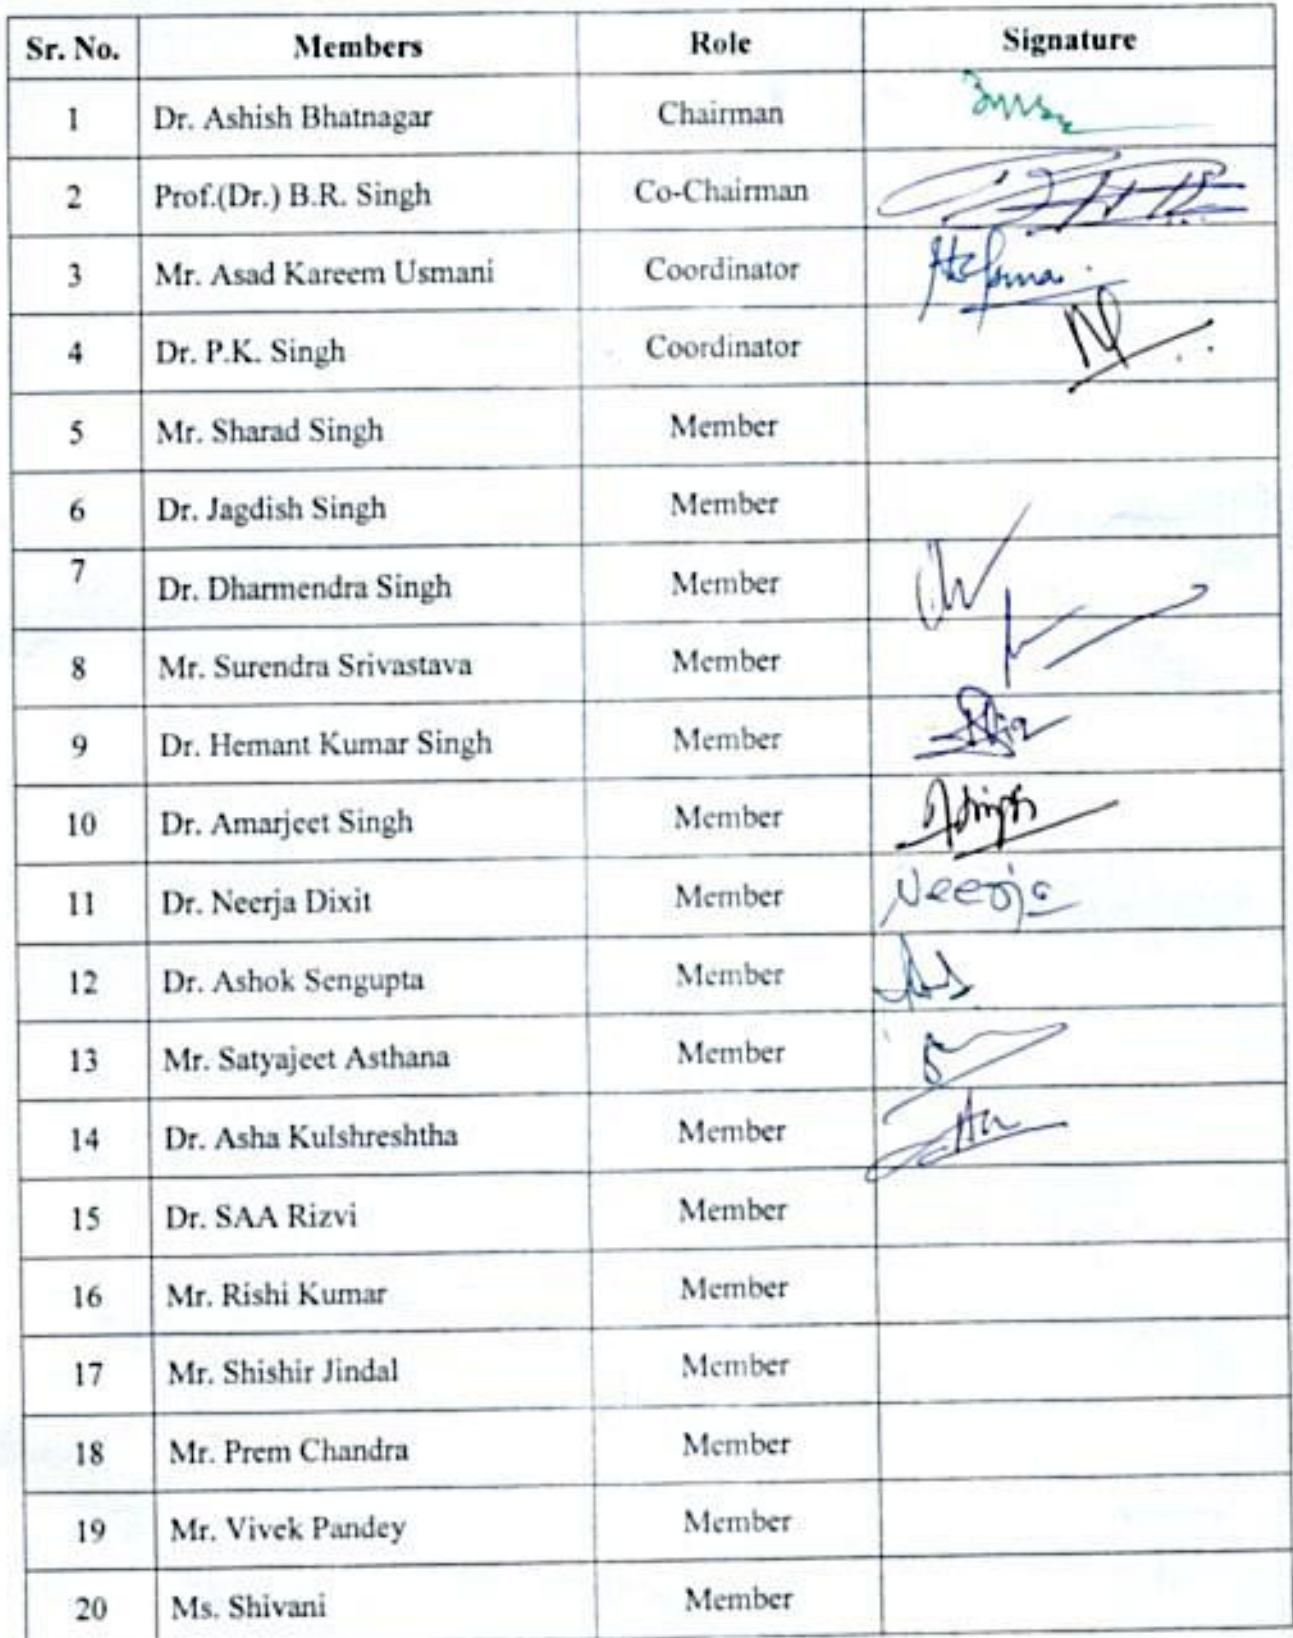 Sr. No. Members Role Signature
1 Dr. Ashish Bhatnagar Chairman
2 Prof.(Dr.) B.R. Singh Co-Chairman
3 Mr. Asad Kareem Usmani Coordinator
4 Dr. P.K. Singh Coordinator
5 Mr. Sharad Singh Member
6 Dr. Jagdish Singh Member
7 Dr. Dharmendra Singh Member
8 Mr. Surendra Srivastava Member
9 Dr. Hemant Kumar Singh Member
10 Dr. Amarjeet Singh Member
11 Dr. Neerja Dixit Member Neerja
12 Dr. Ashok Sengupta Member
13 Mr. Satyajeet Asthana Member
14 Dr. Asha Kulshreshtha Member
15 Dr. SAA Rizvi Member
16 Mr. Rishi Kumar Member
17 Mr. Shishir Jindal Member
18 Mr. Prem Chandra Member
19 Mr. Vivek Pandey Member
20 Ms. Shivani Member